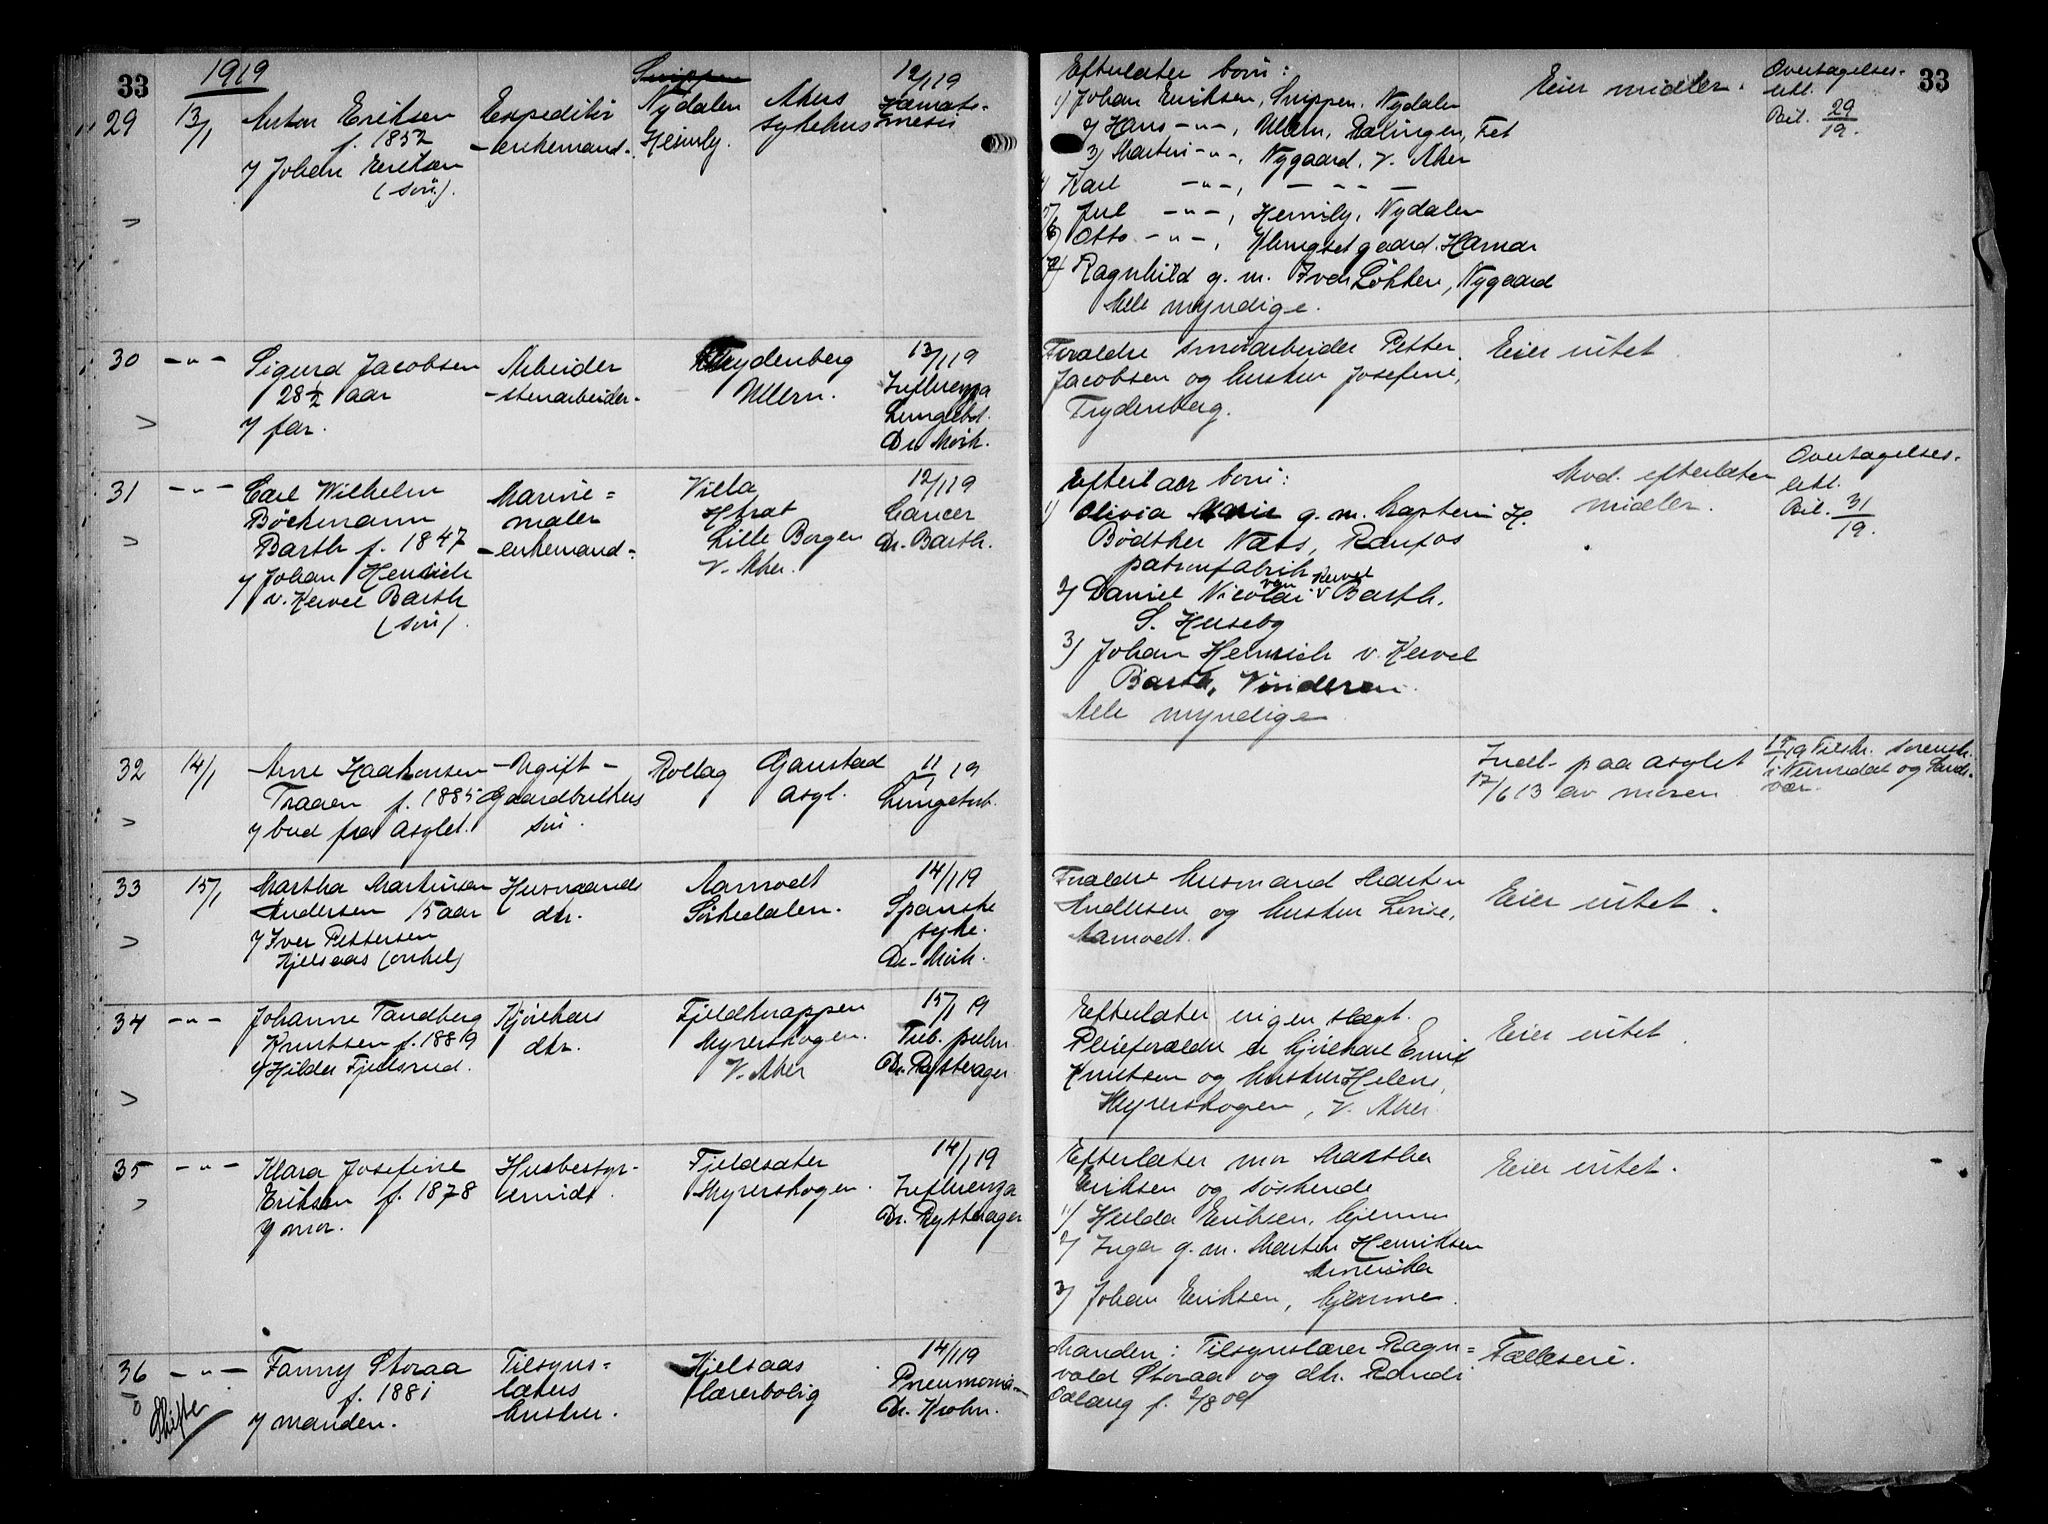 33
1919
29 13/1 Anton Eriksen Expeditør Nydalen Akers 12/1 19
f. 1852 - enkemand - Heimly. sykehus Hæmate-
v/ Johan Eriksen mesis
(søn).
30 -"- Sigurd Jacobsen Arbeider Frydenberg 13/1 19
28 1/2 aar - stenarbeider - Ullern. Influenza
v/ far. Lungebet.
Dr. Mørk.
31 -"- Carl Wilhelm Marine= Villa 12/1 19
Böckmann maler Cancer
Barth f. 1847 - enkemand - Lille Borgen Dr. Barth.
v/ Johan Henrich V. Aker.
v. Kervel Barth
(søn).
32 14/1 Arne Haakonsen - Ugift - Rollag Gaustad 11/1 19
Traaen f. 1885 Gaardbrukers asyl. Lungetub.
v/ bud fra asylet. søn.
33 15/1 Martha Martinsen Husmands Aamodt 14/1 19
Andersen 15 aar dtr. Sørkedalen. Spanske
v/ Iver Pettersen syke.
Kjelsaas (onkel) Dr. Mørk.
34 -"- Johanne Tandberg Kjørekars Fjeldknappen 15/1 19
Knutsen f. 1889 dtr. Myrerskogen. Tub. pulm.
v/ Hilda Fjelsrud. V. Aker Dr. Røstvager
35 -"- Klara Josefine Husbestyr- Fjeldsæter 14/1 19
Eriksen f. 1878 erinde. Myrerskogen. Influenza
v/ mor.
36 -"- Fanny Storaa Tilsyns= Kjelsaas 14/1 19
f. 1881 lærers lærerbolig Pneumonia
Skifte v/ manden. hustru. Dr. Krohn.
33
Efterlater børn: Eier midler. Overtagelses-
1) Johan Eriksen, Snippen. Nydalen erkl.
2) Hans -"-, Ullern, Rælingen, Fet Bil. 29/19.
3) Martin -"-, Nygaard. V. Aker
4) Karl -"-, - - - -
5) Jul -"-, Heimly, Nydalen
6) Otto -"-, gaard. Hamar
7) Ragnhild g. m. Iver Løkken, Nygaard
Alle myndige.
Forældre stenarbeider Petter Eier intet
Jacobsen og hustru Josefine,
Frydenberg.
Efterlater børn: Avd. efterlater Overtagelses-
1) Olivia Marie g. m. kaptein H. midler. erkl.
Bödtker Næss, Raufos Bil. 31/19.
patronfabrik
2) Daniel Nicolai van Kervel Barth,
S. Huseby
3) Johan Henrich v. Kervel
Barth, Vinderen.
Alle myndige
Indl. paa asylet Tilskr. sorenskr.
17/6 13 av moren i Numedal og Sands-
vær.
Forældre husmand Martin Eier intet.
Andersen og hustru Lovise,
Aamodt.
Efterlater ingen slægt. Eier intet
Pleieforældre er kjørekar Emil
Knutsen og hustru Helene,
Myrerskogen, V. Aker.
Efterlater mor Martha Eier intet.
Eriksen og søskende
1) Hulda Eriksen, hjemme
2) Inga g. m. Martin Henriksen
Amerika
3) Johan Eriksen, hjemme.
Manden: Tilsynslærer Ragn= Fælleseie.
vald Storaa og dtr. Randi
Odlaug f. 2/8 09